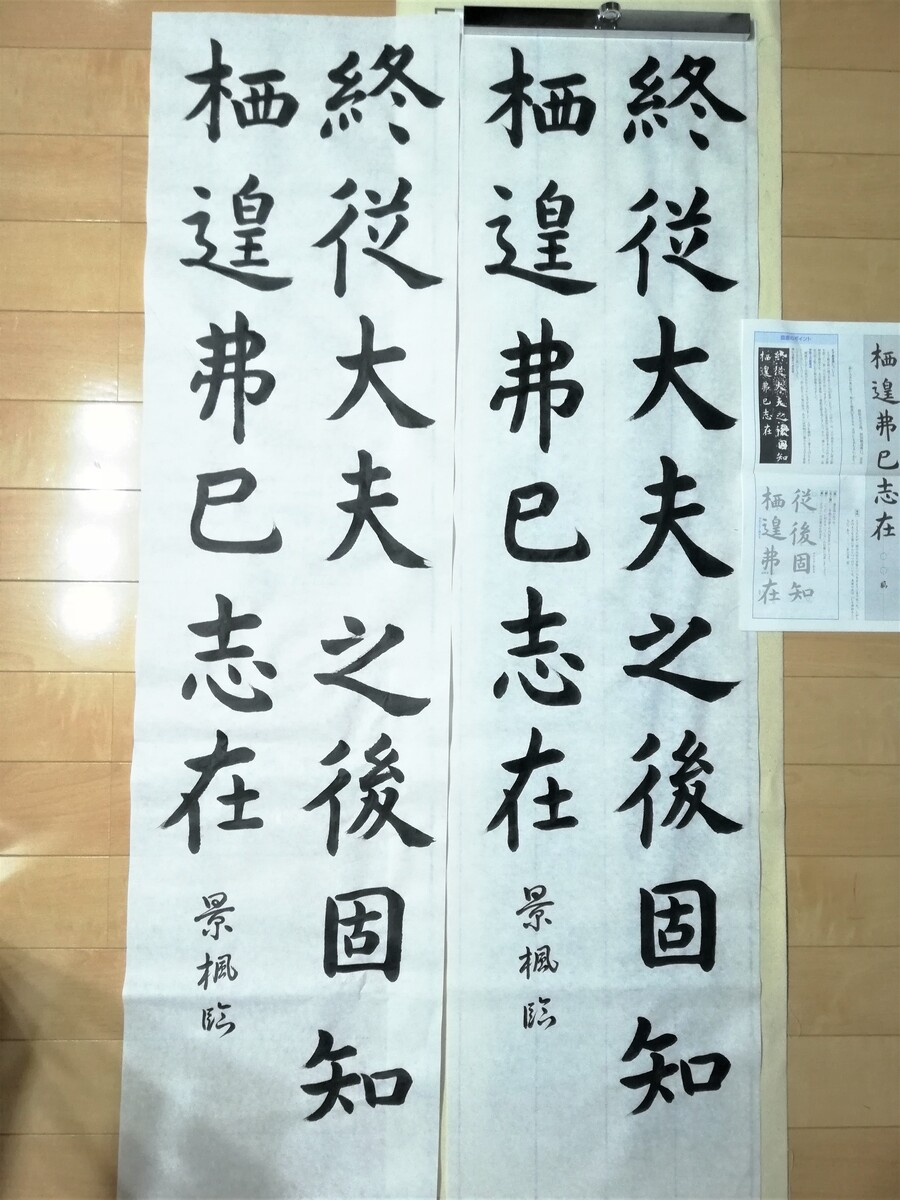 終従大夫之後固知
栖遑弗已志在
景楓臨
終従大夫之後固知
栖遑弗已志在
景楓臨
栖遑弗已志在
終従大夫之後固知
栖遑弗已志在
従後固知
栖遑弗在